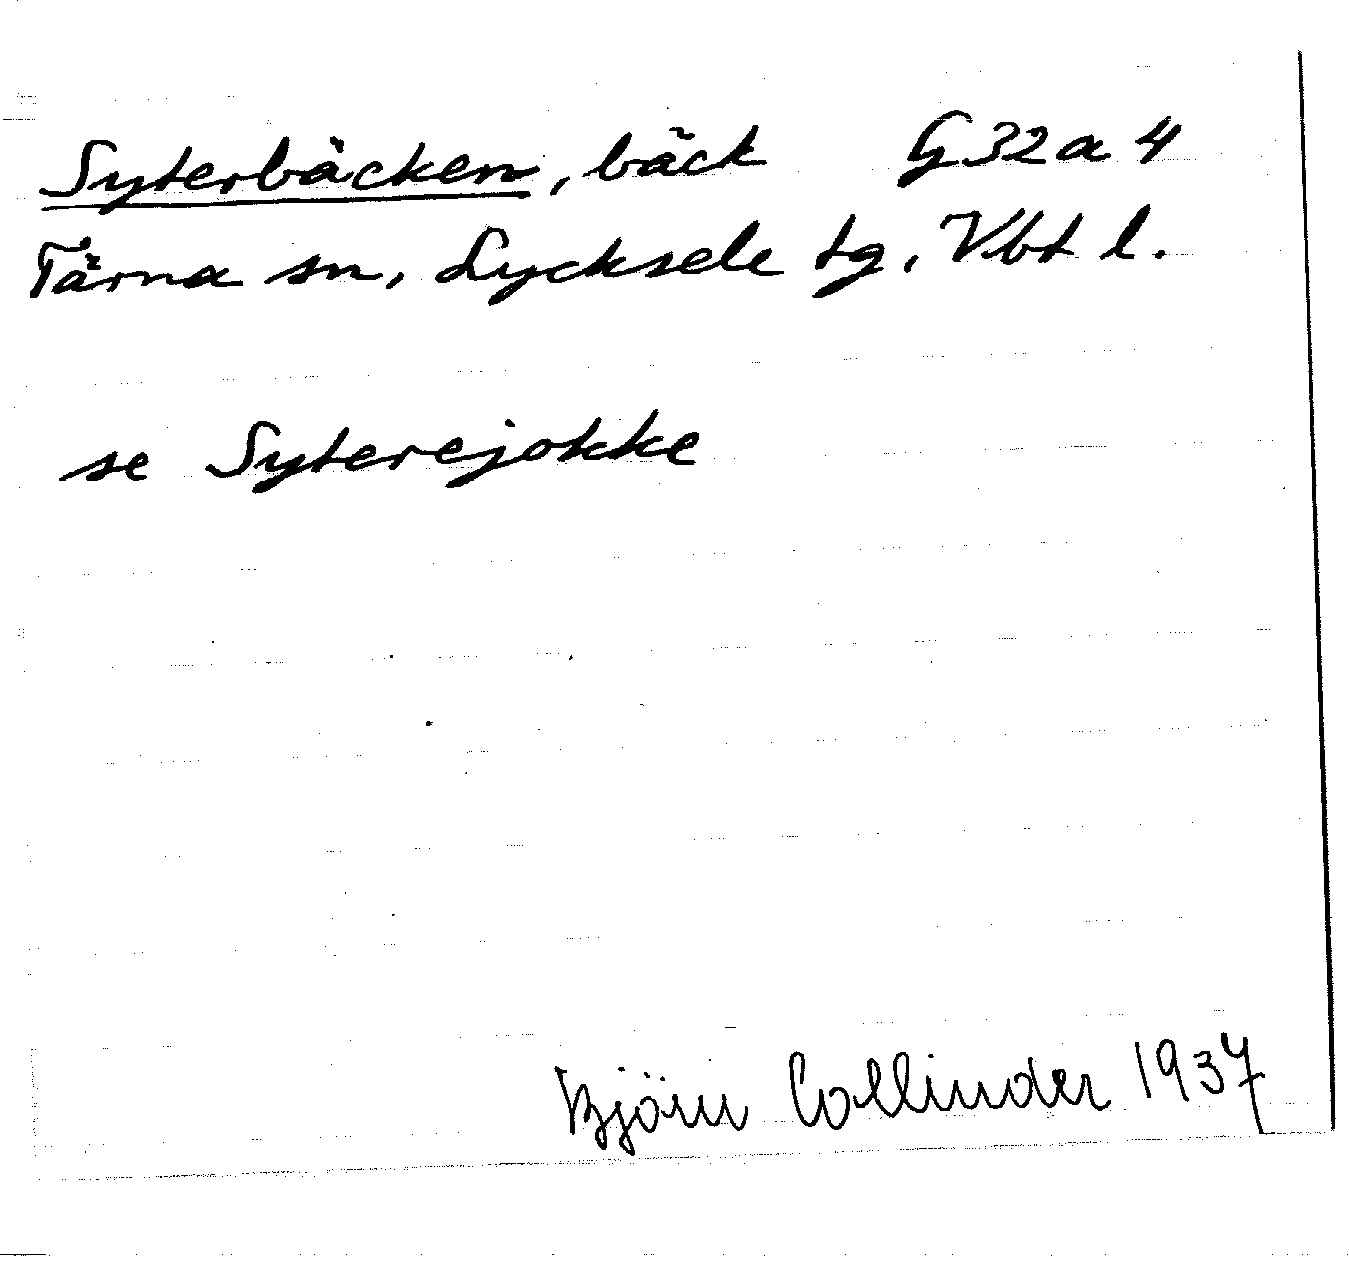 Syterbäcken, bäck G32a4
Tärna sn, Lycksele tg, Vbt l.
se Syterejokke
Björn Collinder 1937